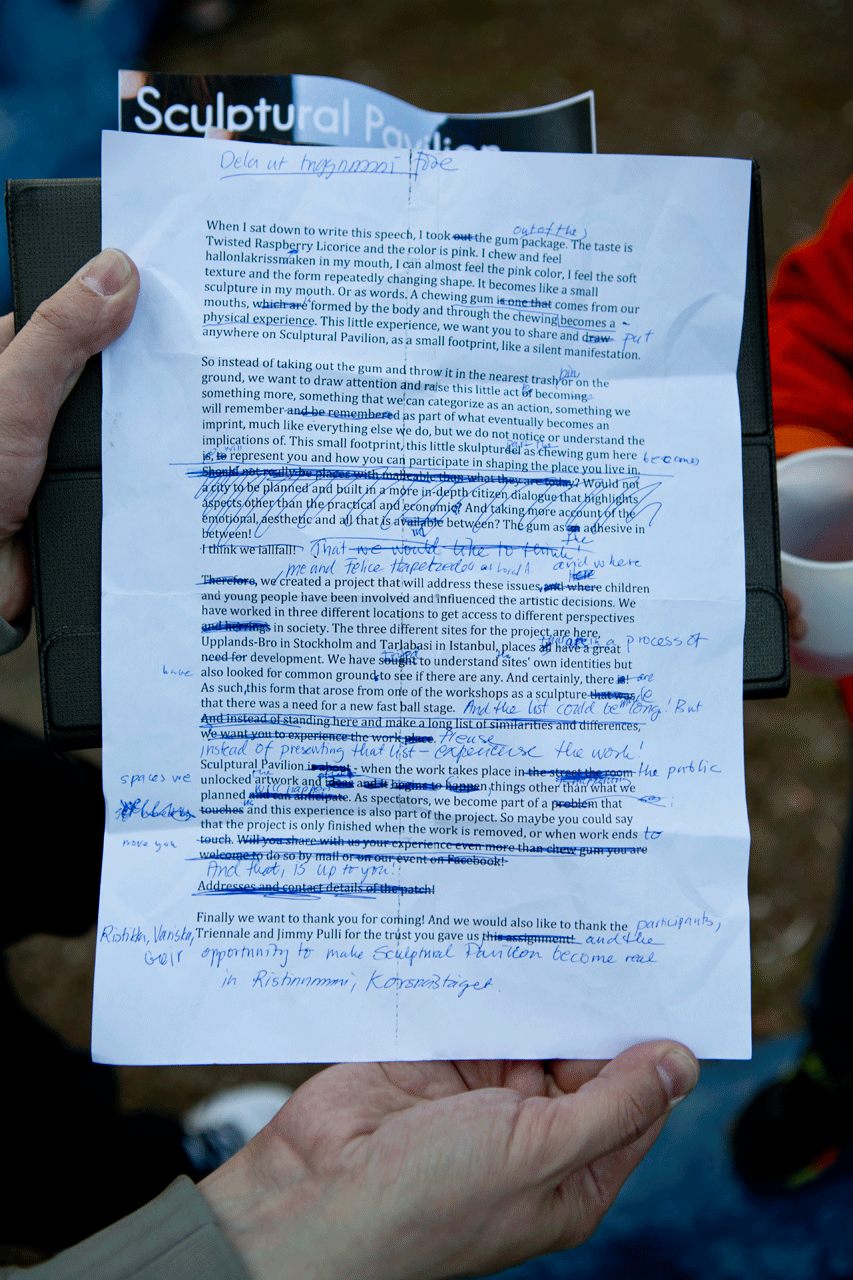 Sculptural Pavilion
Dela ut tuggummi före
When I sat down to write this speech, I took out the gum package. out of the The taste is
Twisted Raspberry Licorice and the color is pink. I chew and feel
hallonlakrissmaken in my mouth, I can almost feel the pink color, I feel the soft
texture and the form repeatedly changing shape. It becomes like a small
sculpture in my mouth. Or as words. A chewing gum is one that comes from our
mouths, which are formed by the body and through the chewing becomes a
physical experience. This little experience, we want you to share and draw put
anywhere on Sculptural Pavilion, as a small footprint, like a silent manifestation.
So instead of taking out the gum and throw it in the nearest trash or on the
ground, we want to draw attention and raise this little act of becoming
something more, something that we can categorize as an action, something we
will remember and be remembered as part of what eventually becomes an
imprint, much like everything else we do, but we do not notice or understand the
implications of. This small footprint, this little skulpturdel as chewing gum here
is, to will represent you and how you can participate in shaping the place you live in. becomes
Should not really be places with malleable than what they are today? Would not
a city to be planned and built in a more in-depth citizen dialogue that highlights
aspects other than the practical and economic? And taking more account of the
emotional, aesthetic and all that is available between? The gum as an adhesive in
between! the
I think we iallfall! That we would like to think!
me and Felice and where
Therefore, we created a project that will address these issues, and where here children
and young people have been involved and influenced the artistic decisions. We
have worked in three different locations to get access to different perspectives
and herrings in society. The three different sites for the project are here,
Upplands-Bro in Stockholm and Tarlabasi in Istanbul, places all have a great in a process of
need for development. We have sought tried to understand the sites' own identities but
have also looked for common ground to see if there are any. And certainly, there is! are
As such, this form that arose from one of the workshops as a sculpture that was
that there was a need for a new fast ball stage. And the list could be long! But
And instead of standing here and make a long list of similarities and differences,
we want you to experience the work place. Please
instead of presenting that list - experience the work!
Sculptural Pavilion is about - when the work takes place in the street the room the public
spaces we unlocked artwork and ideas and it begins to happen, things other than what we
will happen
planned and can anticipate. As spectators, we become part of a problem that
touches and this experience is also part of the project. So maybe you could say
that the project is only finished when the work is removed, or when work ends to
move you touch. Will you share with us your experience even more than chew gum you are
welcome to do so by mail or on our event on Facebook!
And that, is up to you!
Addresses and contact details of the patch!
Finally we want to thank you for coming! And we would also like to thank the participants,
Triennale and Jimmy Pulli for the trust you gave us this assignment! and the
opportunity to make Sculptural Pavilion become real
in